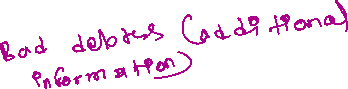 Bad debtes (additional
information)